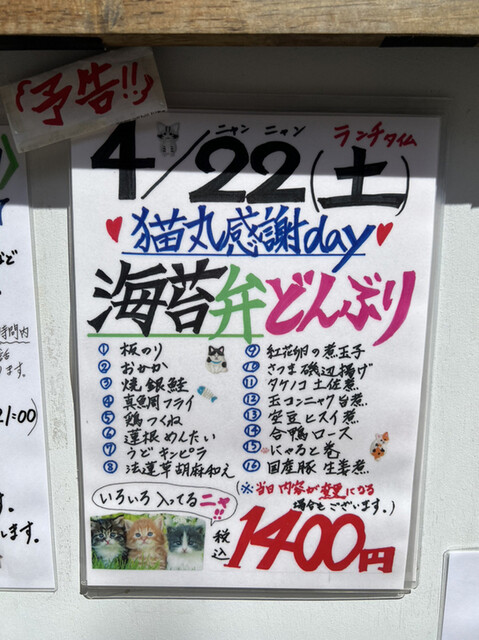 予告!!
ランチタイム
ニャン ニャン
4/22(土)
猫丸感謝day
海苔弁どんぶり
① 板のり
② おかか
③ 焼銀鮭
④ 真鯛フライ
⑤ 鶏つくね
⑥ 蓮根めんたい
⑦ うどキンピラ
⑧ 法蓮草胡麻和え
⑨ 紅花卵の煮玉子
⑩ さつま磯辺揚げ
⑪ タケノコ土佐煮
⑫ 玉コンニャク旨煮
⑬ 空豆ヒスイ煮
⑭ 合鴨ロース
⑮ にゃると巻
⑯ 国産豚生姜煮
いろいろ入ってるニャ!!
(※当日内容が変更になる
場合もございます。)
税込
1400円
など
時間内
ります。
21:00)
す。
します。